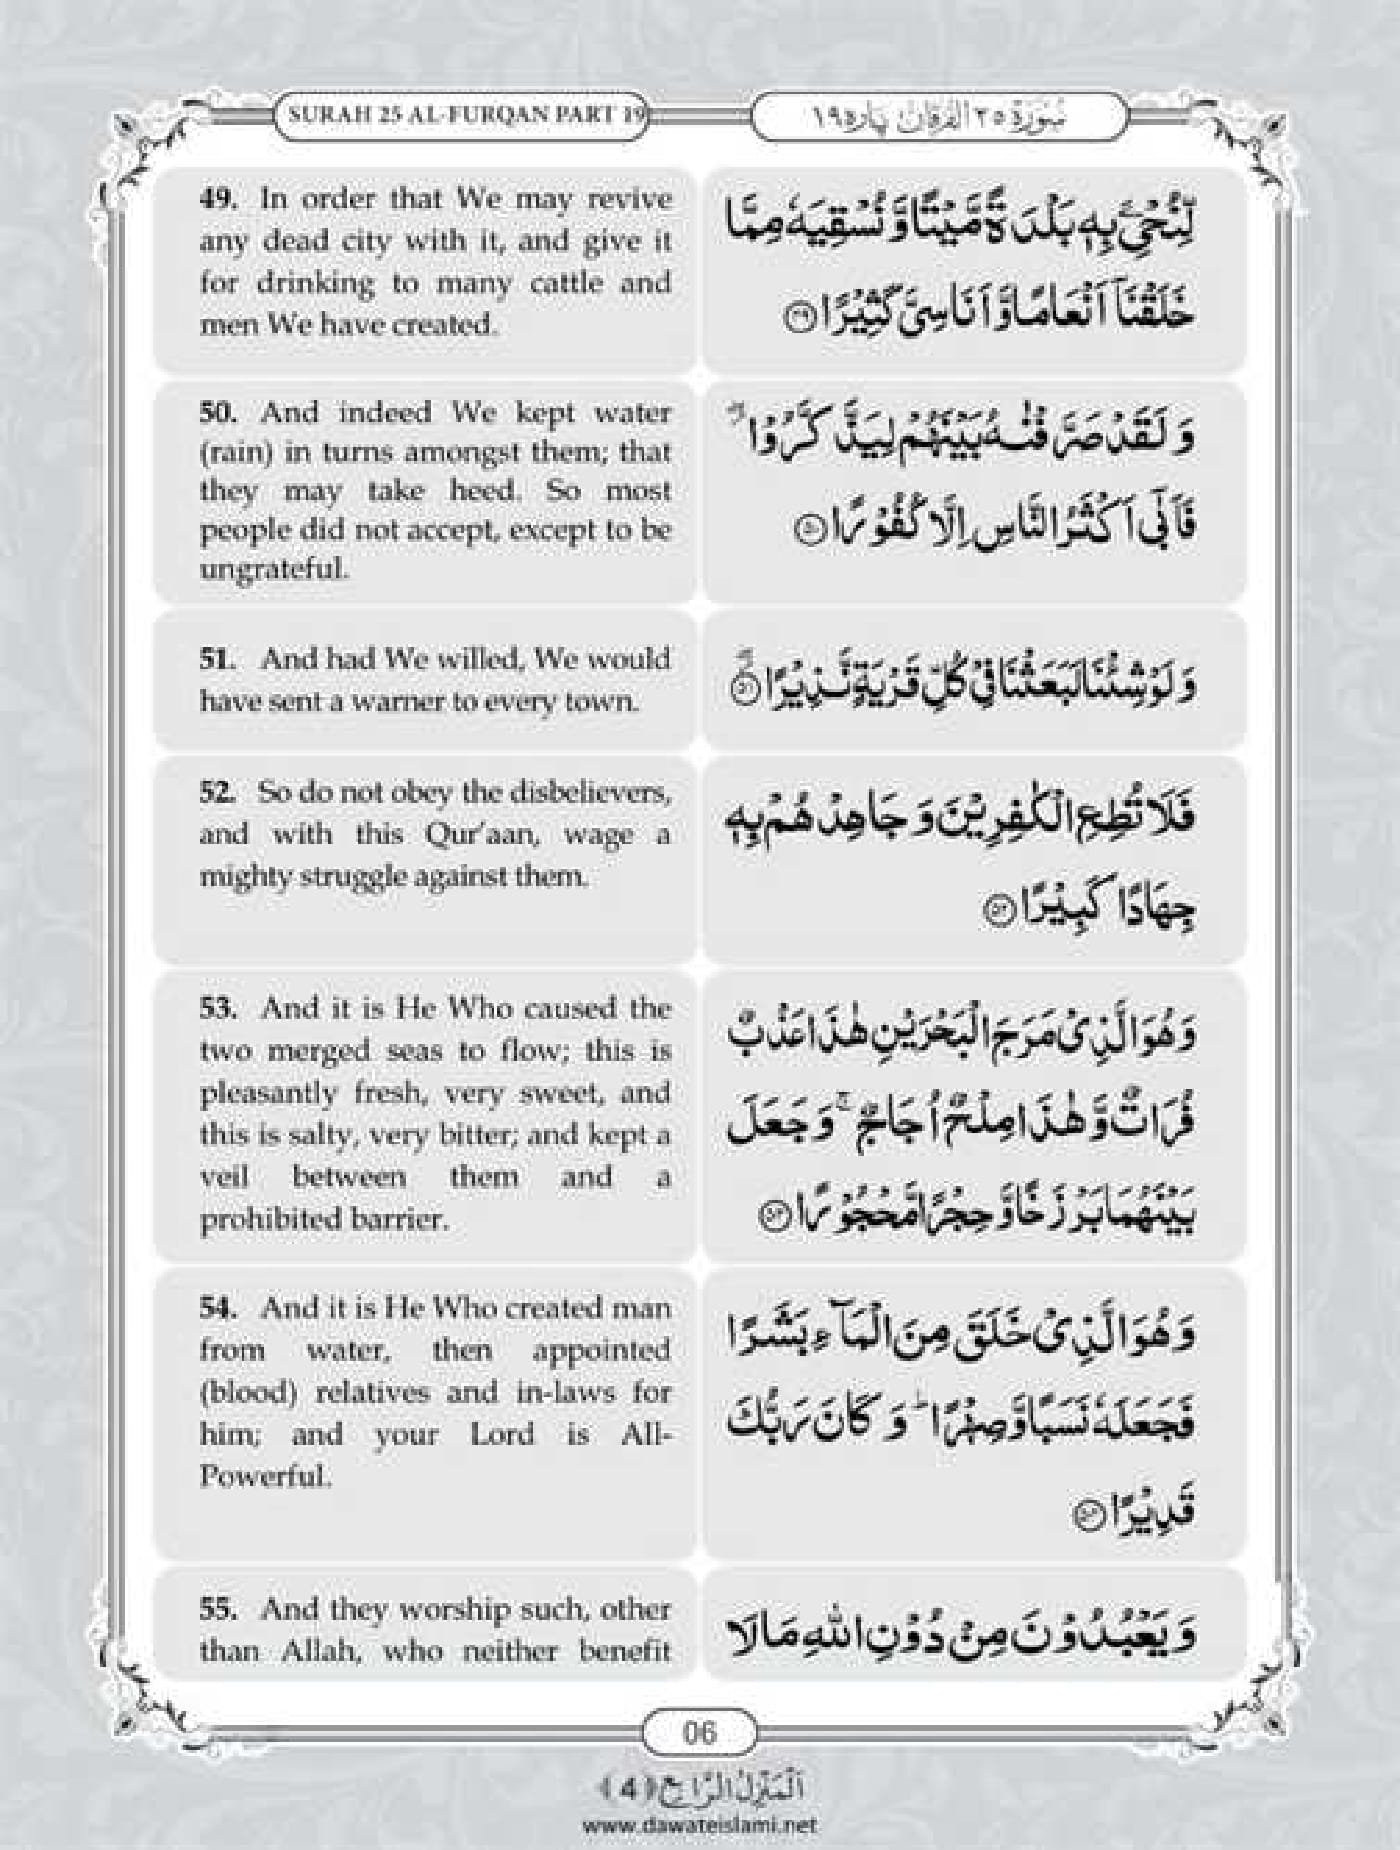 SURAH 25 AL-FURQAN PART 19
سُوْرَةُ ٢٥ اَلْفُرْقَان پاره ١٩
49. In order that We may revive
any dead city with it, and give it
for drinking to many cattle and
men We have created.
لِّنُحْیِۦَ بِهٖ بَلْدَةً مَّیْتًا وَّ نُسْقِیَهٗ مِمَّا
خَلَقْنَاۤ اَنْعَامًا وَّ اَنَاسِیَّ كَثِیْرًا ﴿۴۹﴾
50. And indeed We kept water
(rain) in turns amongst them; that
they may take heed. So most
people did not accept, except to be
ungrateful.
وَ لَقَدْ صَرَّفْنٰهُ بَیْنَهُمْ لِیَذَّكَّرُوْا ۖ٘
فَاَبٰۤی اَكْثَرُ النَّاسِ اِلَّا كُفُوْرًا ﴿۵۰﴾
51. And had We willed, We would
have sent a warner to every town.
وَ لَوْ شِئْنَا لَبَعَثْنَا فِیْ كُلِّ قَرْیَةٍ نَّذِیْرًا ﴿۵۱﴾ۖ٘
52. So do not obey the disbelievers,
and with this Qur’aan, wage a
mighty struggle against them.
فَلَا تُطِعِ الْكٰفِرِیْنَ وَ جَاهِدْهُمْ بِهٖ
جِهَادًا كَبِیْرًا ﴿۵۲﴾
53. And it is He Who caused the
two merged seas to flow; this is
pleasantly fresh, very sweet, and
this is salty, very bitter; and kept a
veil between them and a
prohibited barrier.
وَ هُوَ الَّذِیْ مَرَجَ الْبَحْرَیْنِ هٰذَا عَذْبٌ
فُرَاتٌ وَّ هٰذَا مِلْحٌ اُجَاجٌ ۚ وَ جَعَلَ
بَیْنَهُمَا بَرْزَخًا وَّ حِجْرًا مَّحْجُوْرًا ﴿۵۳﴾
54. And it is He Who created man
from water, then appointed
(blood) relatives and in-laws for
him; and your Lord is All-
Powerful.
وَ هُوَ الَّذِیْ خَلَقَ مِنَ الْمَآءِ بَشَرًا
فَجَعَلَهٗ نَسَبًا وَّ صِهْرًا ؕ وَ كَانَ رَبُّكَ
قَدِیْرًا ﴿۵۴﴾
55. And they worship such, other
than Allah, who neither benefit
وَ یَعْبُدُوْنَ مِنْ دُوْنِ اللّٰهِ مَا لَا
06
اَلْمَنْزِلُ الرَّابِع ﴿4﴾
www.dawateislami.net